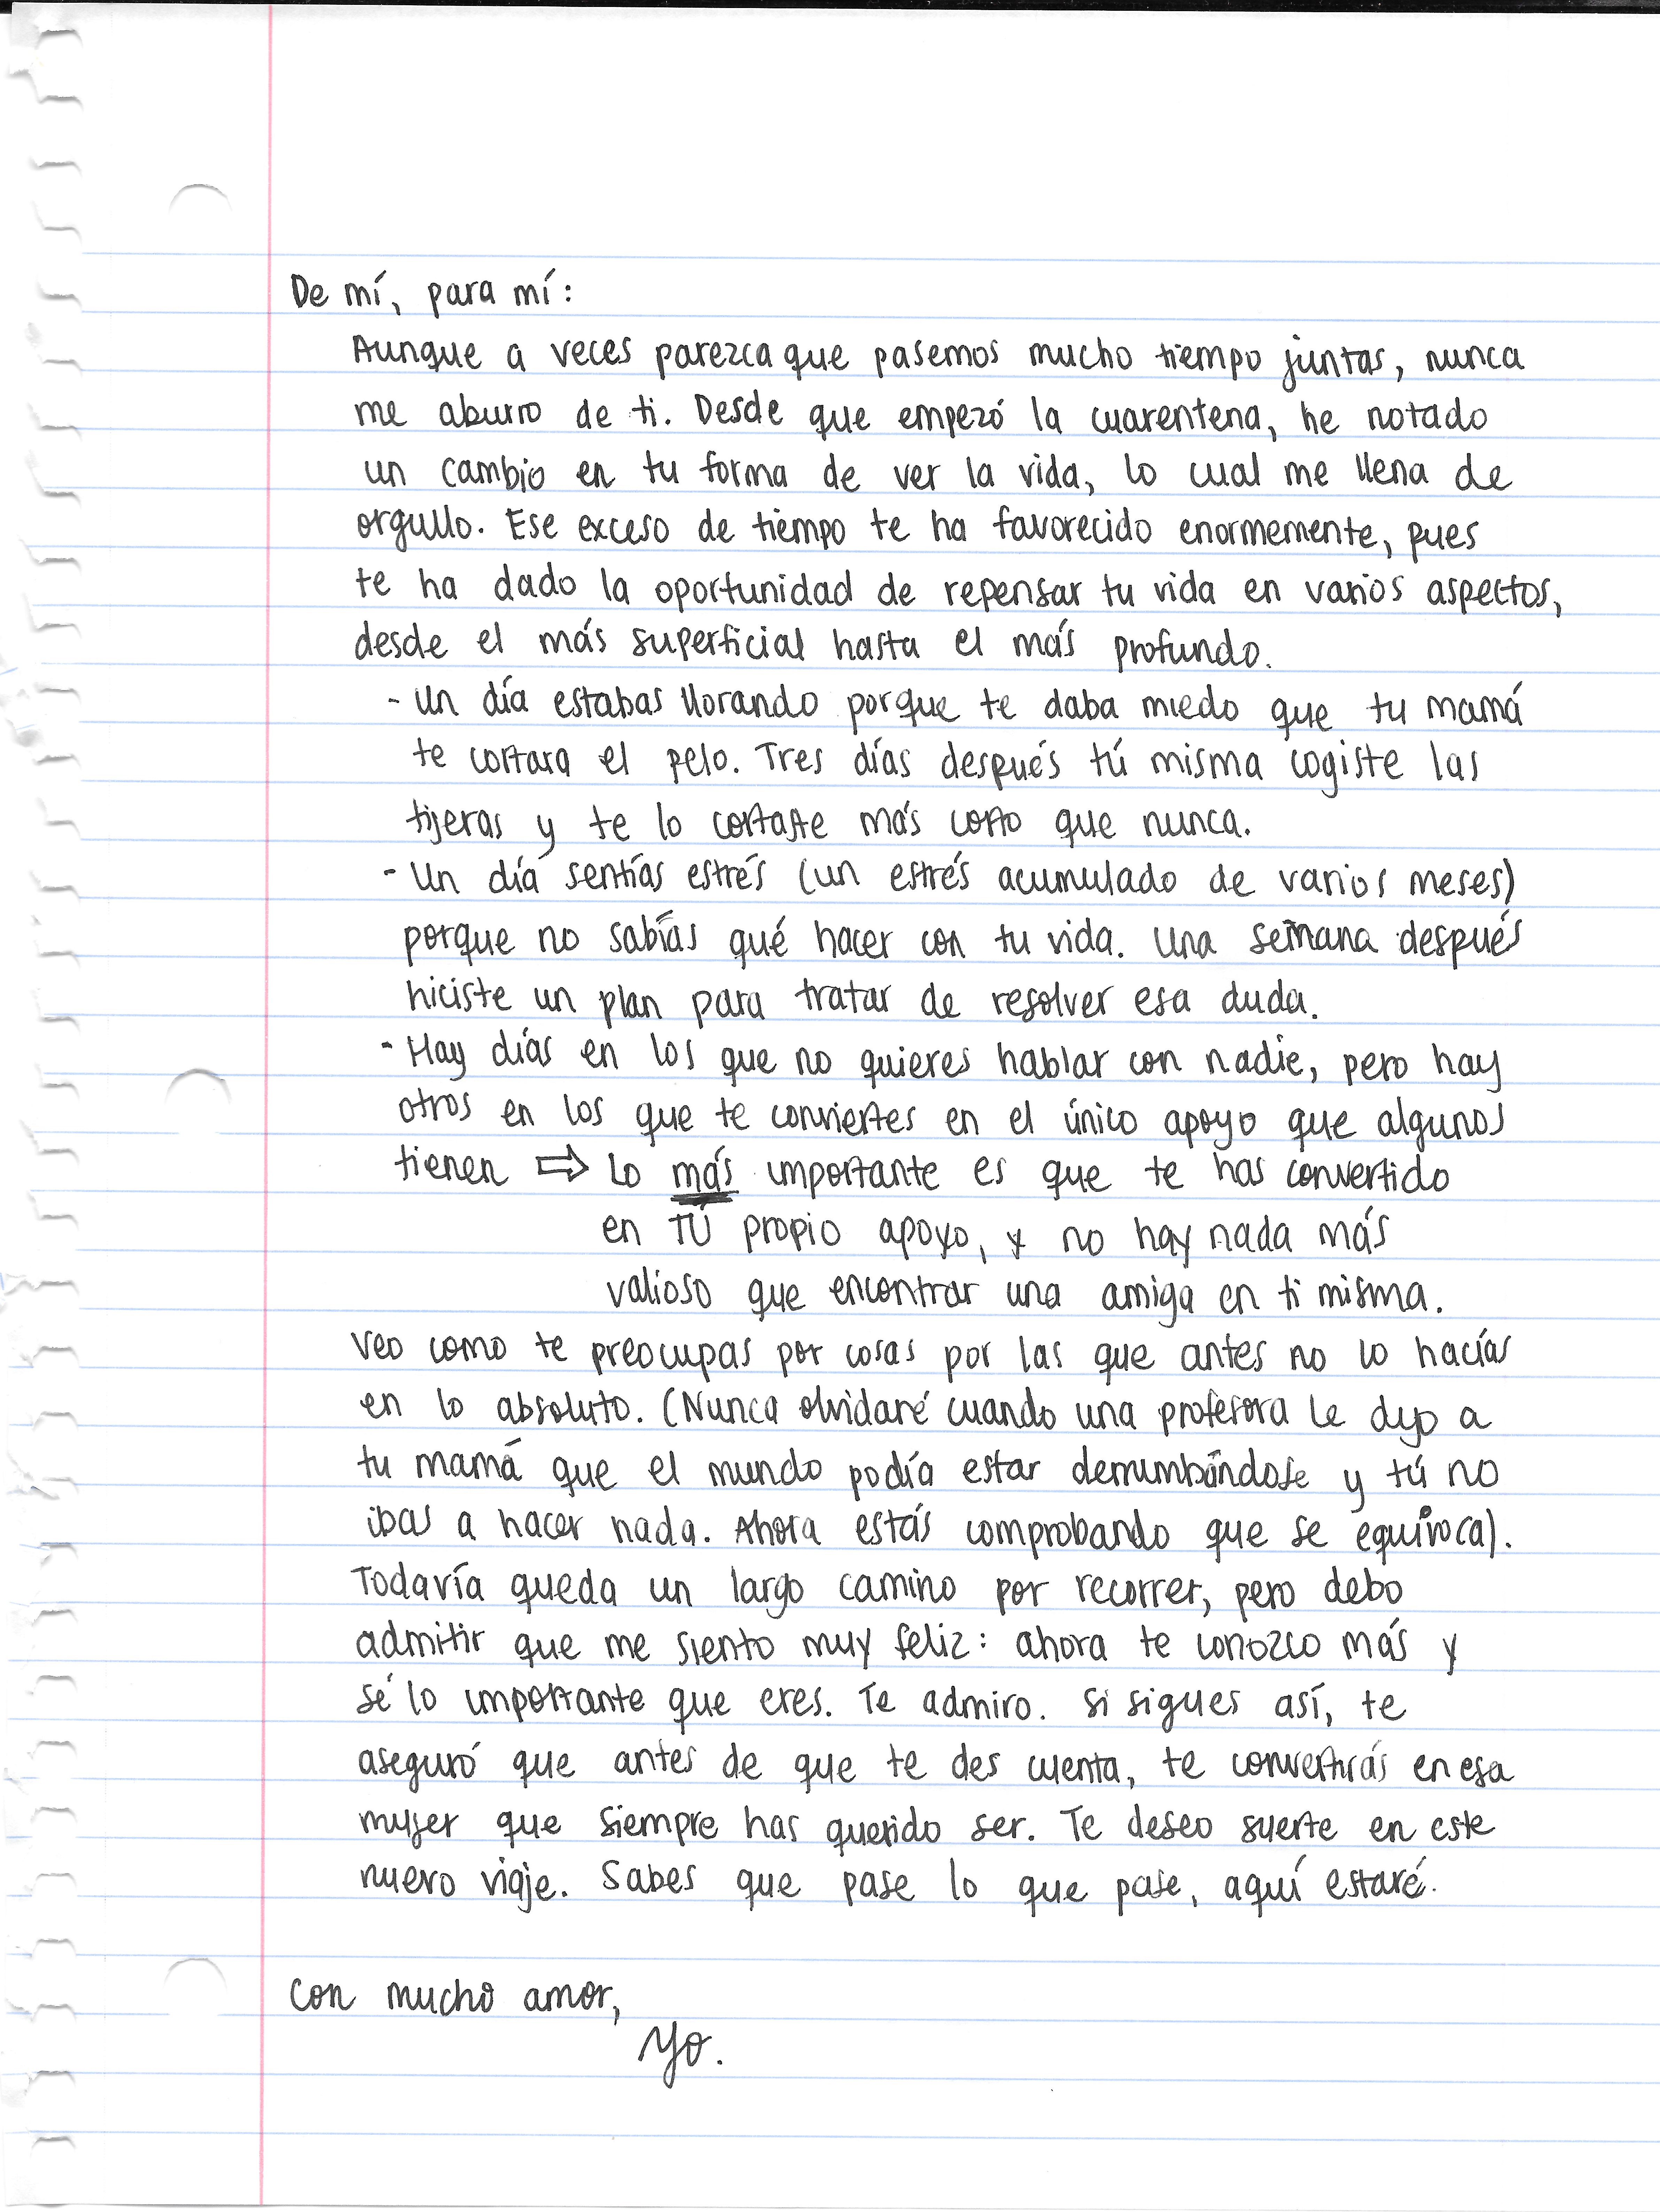 De mí, para mí:
Aunque a veces parezca que pasemos mucho tiempo juntas, nunca
me aburro de ti. Desde que empezó la cuarentena, he notado
un cambio en tu forma de ver la vida, lo cual me llena de
orgullo. Ese exceso de tiempo te ha favorecido enormemente, pues
te ha dado la oportunidad de repensar tu vida en varios aspectos,
desde el más superficial hasta el más profundo.
- Un día estabas llorando porque te daba miedo que tu mamá
te cortara el pelo. Tres días después tú misma cogiste las
tijeras y te lo cortaste más corto que nunca.
- Un día sentías estrés (un estrés acumulado de varios meses)
porque no sabías qué hacer con tu vida. Una semana después
hiciste un plan para tratar de resolver esa duda.
- Hay días en los que no quieres hablar con nadie, pero hay
otros en los que te conviertes en el único apoyo que algunos
tienen ⇨ Lo más importante es que te has convertido
en TÚ propio apoyo, y no hay nada más
valioso que encontrar una amiga en ti misma.
Veo como te preocupas por cosas por las que antes no lo hacías
en lo absoluto. (Nunca olvidaré cuando una profesora le dijo a
tu mamá que el mundo podía estar derrumbándose y tú no
ibas a hacer nada. Ahora estás comprobando que se equivoca).
Todavía queda un largo camino por recorrer, pero debo
admitir que me siento muy feliz: ahora te conozco más y
sé lo importante que eres. Te admiro. Si sigues así, te
aseguró que antes de que te des cuenta, te convertirás en esa
mujer que siempre has querido ser. Te deseo suerte en este
nuevo viaje. Sabes que pase lo que pase, aquí estaré.
Con mucho amor,
Yo.